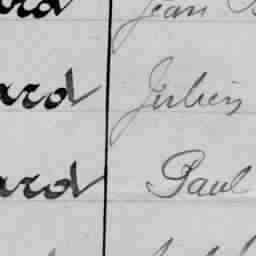 ard Jean
ard Julien
ard Paul